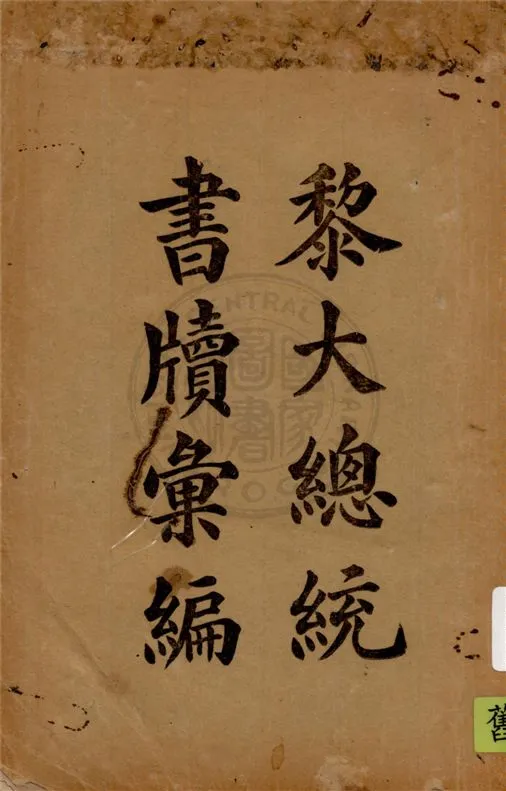 黎大總統
書牘彙編
舊